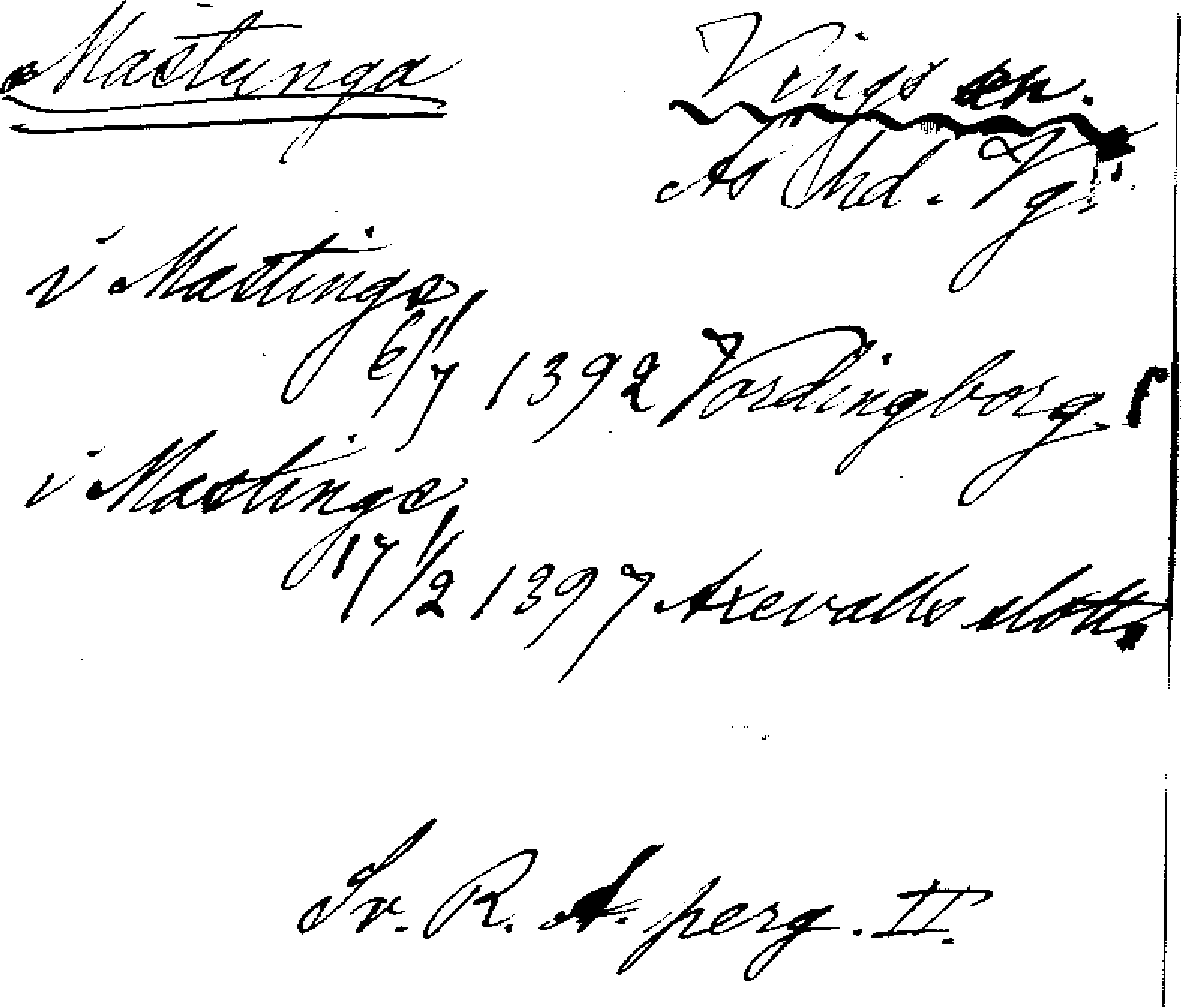 Mastunga
Vings sn.
Ås hd. Vg.
i Mastinge
6/7 1392 Vordingborg
i Mastinge
17/2 1397 Axevalls slott
Sv. R. A. perg. II.